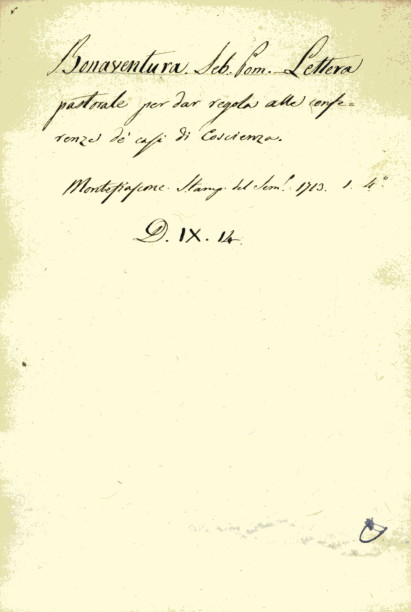 Bonaventura. Seb. Pom. Lettera
pastorale per dar regola alle confe=
renze de' casi di Coscienza.
Montefiascone. Stamp. del Sem.º 1713. 1. 4.º
D. IX. 14.